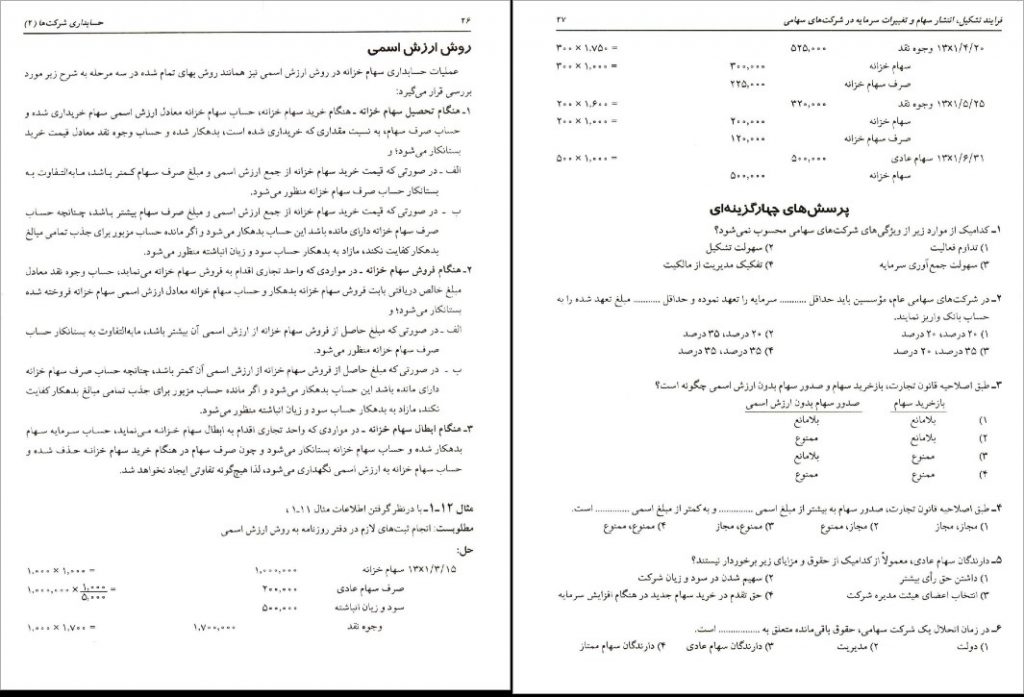 ۲۶
حسابداری شرکت‌ها (۲)
روش ارزش اسمی
عملیات حسابداری سهام خزانه در روش ارزش اسمی نیز همانند روش بهای تمام شده در سه مرحله به شرح زیر مورد
بررسی قرار می‌گیرد:
۱ـ هنگام تحصیل سهام خزانه ـ هنگام خرید سهام خزانه، حساب سهام خزانه معادل ارزش اسمی سهام خریداری شده و
حساب صرف سهام، به نسبت مقداری که خریداری شده است، بدهکار شده و حساب وجوه نقد معادل قیمت خرید
بستانکار می‌شود؛ و
الف ـ در صورتی که قیمت خرید سهام خزانه از جمع ارزش اسمی و مبلغ صرف سهام کمتر باشد، مابه‌التفاوت به
بستانکار حساب صرف سهام خزانه منظور می‌شود.
ب ـ در صورتی که قیمت خرید سهام خزانه از جمع ارزش اسمی و مبلغ صرف سهام بیشتر باشد، چنانچه حساب
صرف سهام خزانه دارای مانده باشد این حساب بدهکار می‌شود و اگر مانده حساب مزبور برای جذب تمامی مبالغ
بدهکار کفایت نکند، مازاد به بدهکار حساب سود و زیان انباشته منظور می‌شود.
۲ـ هنگام فروش سهام خزانه ـ در مواردی که واحد تجاری اقدام به فروش سهام خزانه می‌نماید، حساب وجوه نقد معادل
مبلغ خالص دریافتی بابت فروش سهام خزانه بدهکار و حساب سهام خزانه معادل ارزش اسمی سهام خزانه فروخته شده
بستانکار می‌شود؛ و
الف ـ در صورتی که مبلغ حاصل از فروش سهام خزانه از ارزش اسمی آن بیشتر باشد، مابه‌التفاوت به بستانکار حساب
صرف سهام خزانه منظور می‌شود.
ب ـ در صورتی که مبلغ حاصل از فروش سهام خزانه از ارزش اسمی آن کمتر باشد، چنانچه حساب صرف سهام خزانه
دارای مانده باشد این حساب بدهکار می‌شود و اگر مانده حساب مزبور برای جذب تمامی مبالغ بدهکار کفایت
نکند، مازاد به بدهکار حساب سود و زیان انباشته منظور می‌شود.
۳ـ هنگام ابطال سهام خزانه ـ در مواردی که واحد تجاری اقدام به ابطال سهام خزانه می‌نماید، حساب سرمایه سهام
بدهکار شده و حساب سهام خزانه بستانکار می‌شود و چون صرف سهام در هنگام خرید سهام خزانه حذف شده و
حساب سهام خزانه به ارزش اسمی نگهداری می‌شود، لذا هیچگونه تفاوتی ایجاد نخواهد شد.
مثال ۱۲ـ۱ـ با درنظر گرفتن اطلاعات مثال ۱۱ـ۱ ،
مطلوبست: انجام ثبت‌های لازم در دفتر روزنامه به روش ارزش اسمی
حل:
۱۳×۱/۳/۱۵ سهام خزانه ۱,۰۰۰,۰۰۰ = ۱,۰۰۰ × ۱,۰۰۰
صرف سهام عادی ۲۰۰,۰۰۰ = ۱,۰۰۰,۰۰۰ × ۱,۰۰۰/۵,۰۰۰
سود و زیان انباشته ۵۰۰,۰۰۰
وجوه نقد ۱,۷۰۰,۰۰۰ = ۱,۰۰۰ × ۱,۷۰۰
فرایند تشکیل، انتشار سهام و تغییرات سرمایه در شرکت‌های سهامی
۲۷
۱۳×۱/۴/۲۰ وجوه نقد ۵۲۵,۰۰۰ = ۳۰۰ × ۱,۷۵۰
سهام خزانه ۳۰۰,۰۰۰ = ۳۰۰ × ۱,۰۰۰
صرف سهام خزانه ۲۲۵,۰۰۰
۱۳×۱/۵/۲۵ وجوه نقد ۳۲۰,۰۰۰ = ۲۰۰ × ۱,۶۰۰
سهام خزانه ۲۰۰,۰۰۰ = ۲۰۰ × ۱,۰۰۰
صرف سهام خزانه ۱۲۰,۰۰۰
۱۳×۱/۶/۳۱ سهام عادی ۵۰۰,۰۰۰ = ۵۰۰ × ۱,۰۰۰
سهام خزانه ۵۰۰,۰۰۰
پرسش‌های چهارگزینه‌ای
۱ـ کدامیک از موارد زیر از ویژگی‌های شرکت‌های سهامی محسوب نمی‌شود؟
۱) تداوم فعالیت ۲) سهولت تشکیل
۳) سهولت جمع‌آوری سرمایه ۴) تفکیک مدیریت از مالکیت
۲ـ در شرکت‌های سهامی عام، مؤسسین باید حداقل .......... سرمایه را تعهد نموده و حداقل .......... مبلغ تعهد شده را به
حساب بانک واریز نمایند.
۱) ۲۰ درصد، ۲۰ درصد ۲) ۲۰ درصد، ۳۵ درصد
۳) ۳۵ درصد، ۲۰ درصد ۴) ۳۵ درصد، ۳۵ درصد
۳ـ طبق اصلاحیه قانون تجارت، بازخرید سهام و صدور سهام بدون ارزش اسمی چگونه است؟
بازخرید سهام صدور سهام بدون ارزش اسمی
۱) بلامانع بلامانع
۲) بلامانع ممنوع
۳) ممنوع بلامانع
۴) ممنوع ممنوع
۴ـ طبق اصلاحیه قانون تجارت، صدور سهام به بیشتر از مبلغ اسمی ............. و به کمتر از مبلغ اسمی ............. است.
۱) مجاز، مجاز ۲) مجاز، ممنوع ۳) ممنوع، مجاز ۴) ممنوع، ممنوع
۵ـ دارندگان سهام عادی، معمولاً از کدامیک از حقوق و مزایای زیر برخوردار نیستند؟
۱) داشتن حق رأی بیشتر ۲) سهیم شدن در سود و زیان شرکت
۳) انتخاب اعضای هیئت مدیره شرکت ۴) حق تقدم در خرید سهام جدید در هنگام افزایش سرمایه
۶ـ در زمان انحلال یک شرکت سهامی، حقوق باقی‌مانده متعلق به ................ است.
۱) دولت ۲) مدیریت ۳) دارندگان سهام عادی ۴) دارندگان سهام ممتاز